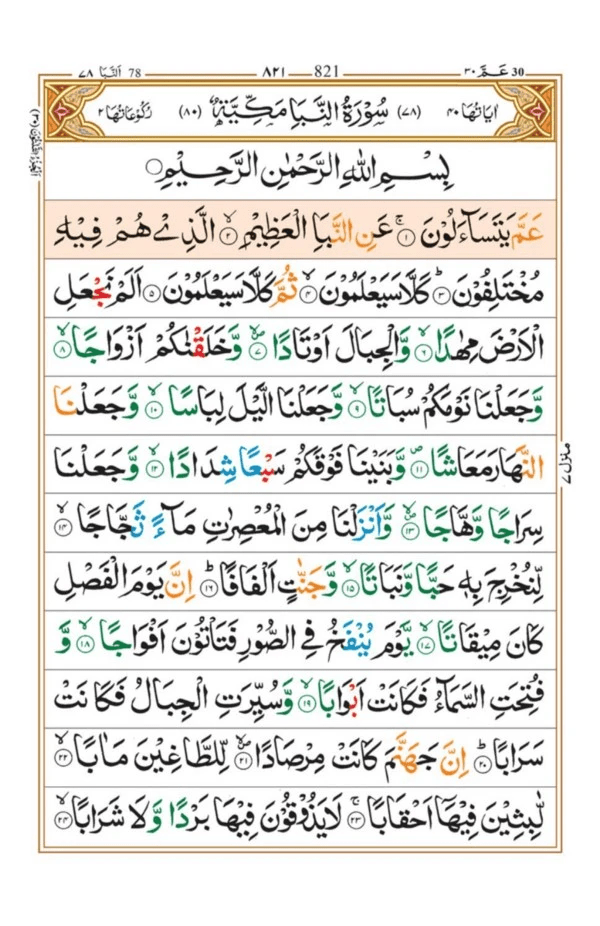 30 عَمَّ ٣٠ 821 — ٨٢١ 78 اَلنَّبَا ٧٨
اٰيَاتُهَا ٤٠ (٧٨) سُوْرَةُ النَّبَاِ مَكِّيَّةٌ (٨٠) رُكُوْعَاتُهَا ٢
بِسْمِ اللّٰهِ الرَّحْمٰنِ الرَّحِيْمِ
عَمَّ يَتَسَآءَلُوْنَ ۚ‏﴿١﴾ عَنِ النَّبَاِ الْعَظِيْمِ ۙ‏﴿٢﴾ الَّذِىْ هُمْ فِيْهِ
مُخْتَلِفُوْنَ ؕ‏﴿٣﴾ كَلَّا سَيَعْلَمُوْنَ ۙ‏﴿٤﴾ ثُمَّ كَلَّا سَيَعْلَمُوْنَ ﴿٥﴾ اَلَمْ نَجْعَلِ
الْاَرْضَ مِهٰدًا ۙ‏﴿٦﴾ وَّالْجِبَالَ اَوْتَادًا ۪ۙ‏﴿٧﴾ وَّخَلَقْنٰكُمْ اَزْوَاجًا ۙ‏﴿٨﴾
وَّجَعَلْنَا نَوْمَكُمْ سُبَاتًا ۙ‏﴿٩﴾ وَّجَعَلْنَا الَّيْلَ لِبَاسًا ۙ‏﴿١٠﴾ وَّجَعَلْنَا
النَّهَارَ مَعَاشًا ۪‏﴿١١﴾ وَّبَنَيْنَا فَوْقَكُمْ سَبْعًا شِدَادًا ۙ‏﴿١٢﴾ وَّجَعَلْنَا
سِرَاجًا وَّهَّاجًا ۪ۙ‏﴿١٣﴾ وَّاَنْزَلْنَا مِنَ الْمُعْصِرٰتِ مَآءً ثَجَّاجًا ۙ‏﴿١٤﴾
لِّنُخْرِجَ بِهٖ حَبًّا وَّنَبَاتًا ۙ‏﴿١٥﴾ وَّجَنّٰتٍ اَلْفَافًا ؕ‏﴿١٦﴾ اِنَّ يَوْمَ الْفَصْلِ
كَانَ مِيْقَاتًا ۙ‏﴿١٧﴾ يَّوْمَ يُنْفَخُ فِى الصُّوْرِ فَتَاْتُوْنَ اَفْوَاجًا ۙ‏﴿١٨﴾ وَّ
فُتِحَتِ السَّمَآءُ فَكَانَتْ اَبْوَابًا ۙ‏﴿١٩﴾ وَّسُيِّرَتِ الْجِبَالُ فَكَانَتْ
سَرَابًا ؕ‏﴿٢٠﴾ اِنَّ جَهَنَّمَ كَانَتْ مِرْصَادًا ۪ۙ‏﴿٢١﴾ لِّلطَّاغِيْنَ مَاٰبًا ۙ‏﴿٢٢﴾
لّٰبِثِيْنَ فِيْهَاۤ اَحْقَابًا ۚ‏﴿٢٣﴾ لَا يَذُوْقُوْنَ فِيْهَا بَرْدًا وَّلَا شَرَابًا ۙ‏﴿٢٤﴾
منزل ٧